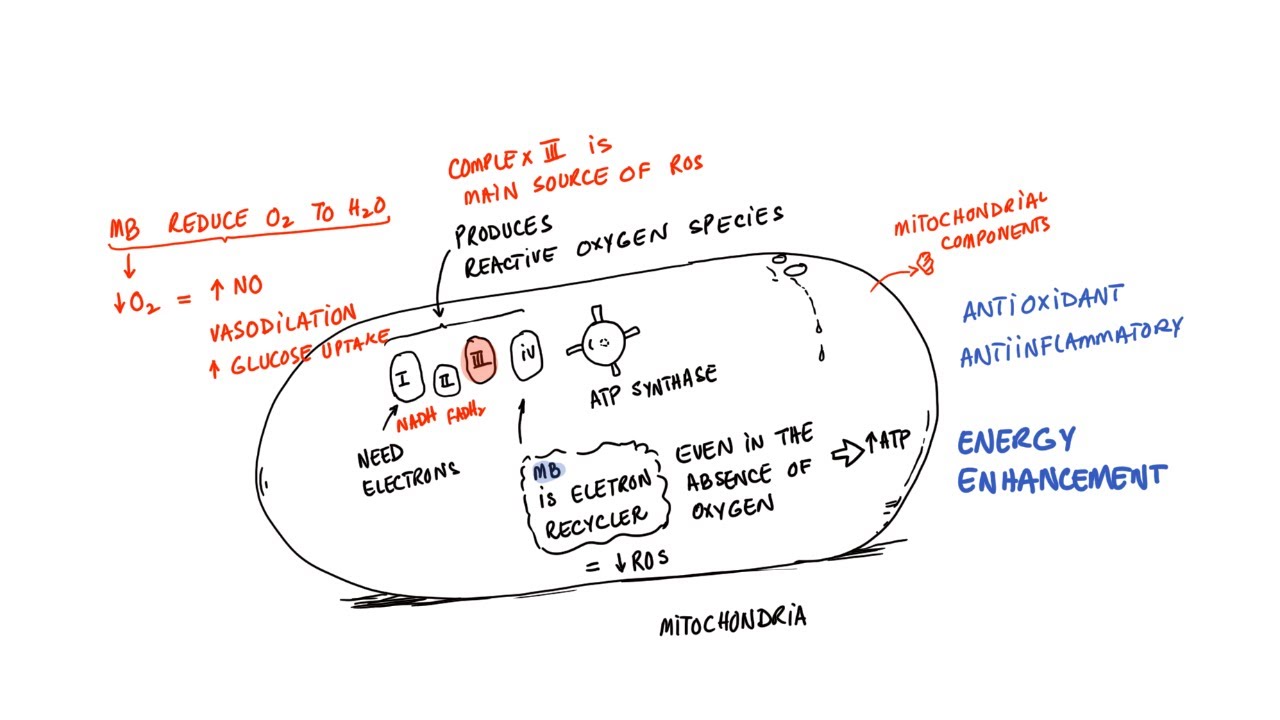 COMPLEX III is
MAIN SOURCE OF ROS
PRODUCES
REACTIVE OXYGEN SPECIES
MB REDUCE O₂ TO H₂O
↓O₂ = ↑ NO
VASODILATION
↑ GLUCOSE UPTAKE
MITOCHONDRIAL
COMPONENTS
ANTIOXIDANT
ANTIINFLAMMATORY
I II III IV
NADH FADH₂
ATP SYNTHASE
NEED
ELECTRONS
MB
is ELETRON
RECYCLER
= ↓ROS
EVEN IN THE
ABSENCE OF
OXYGEN
↑ATP
ENERGY
ENHANCEMENT
MITOCHONDRIA